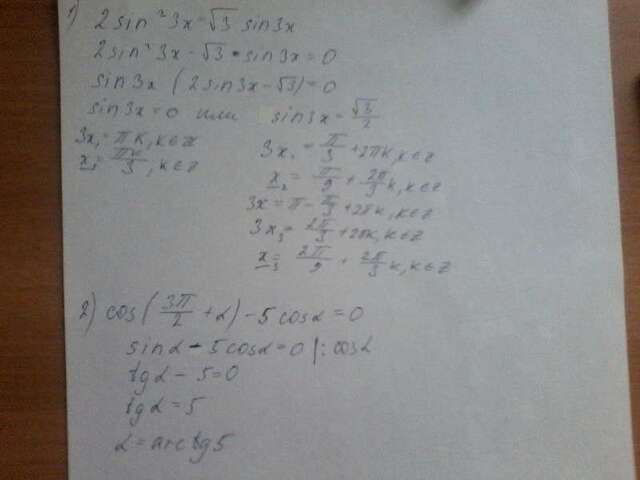 1) 2sin²3x=√3 sin3x
2sin²3x-√3·sin3x=0
sin3x (2sin3x-√3)=0
sin3x=0 или sin3x=√3/2
3x₁=πk, k∈z
x₁=πk/3, k∈z
3x₂=π/3+2πk, k∈z
x₂=π/9+2π/3k, k∈z
3x=π-π/3+2πk, k∈z
3x₃=2π/3+2πk, k∈z
x₃=2π/9+2π/3k, k∈z
2) cos(3π/2+α)-5cosα=0
sinα-5cosα=0 |:cosα
tgα-5=0
tgα=5
α=arctg5